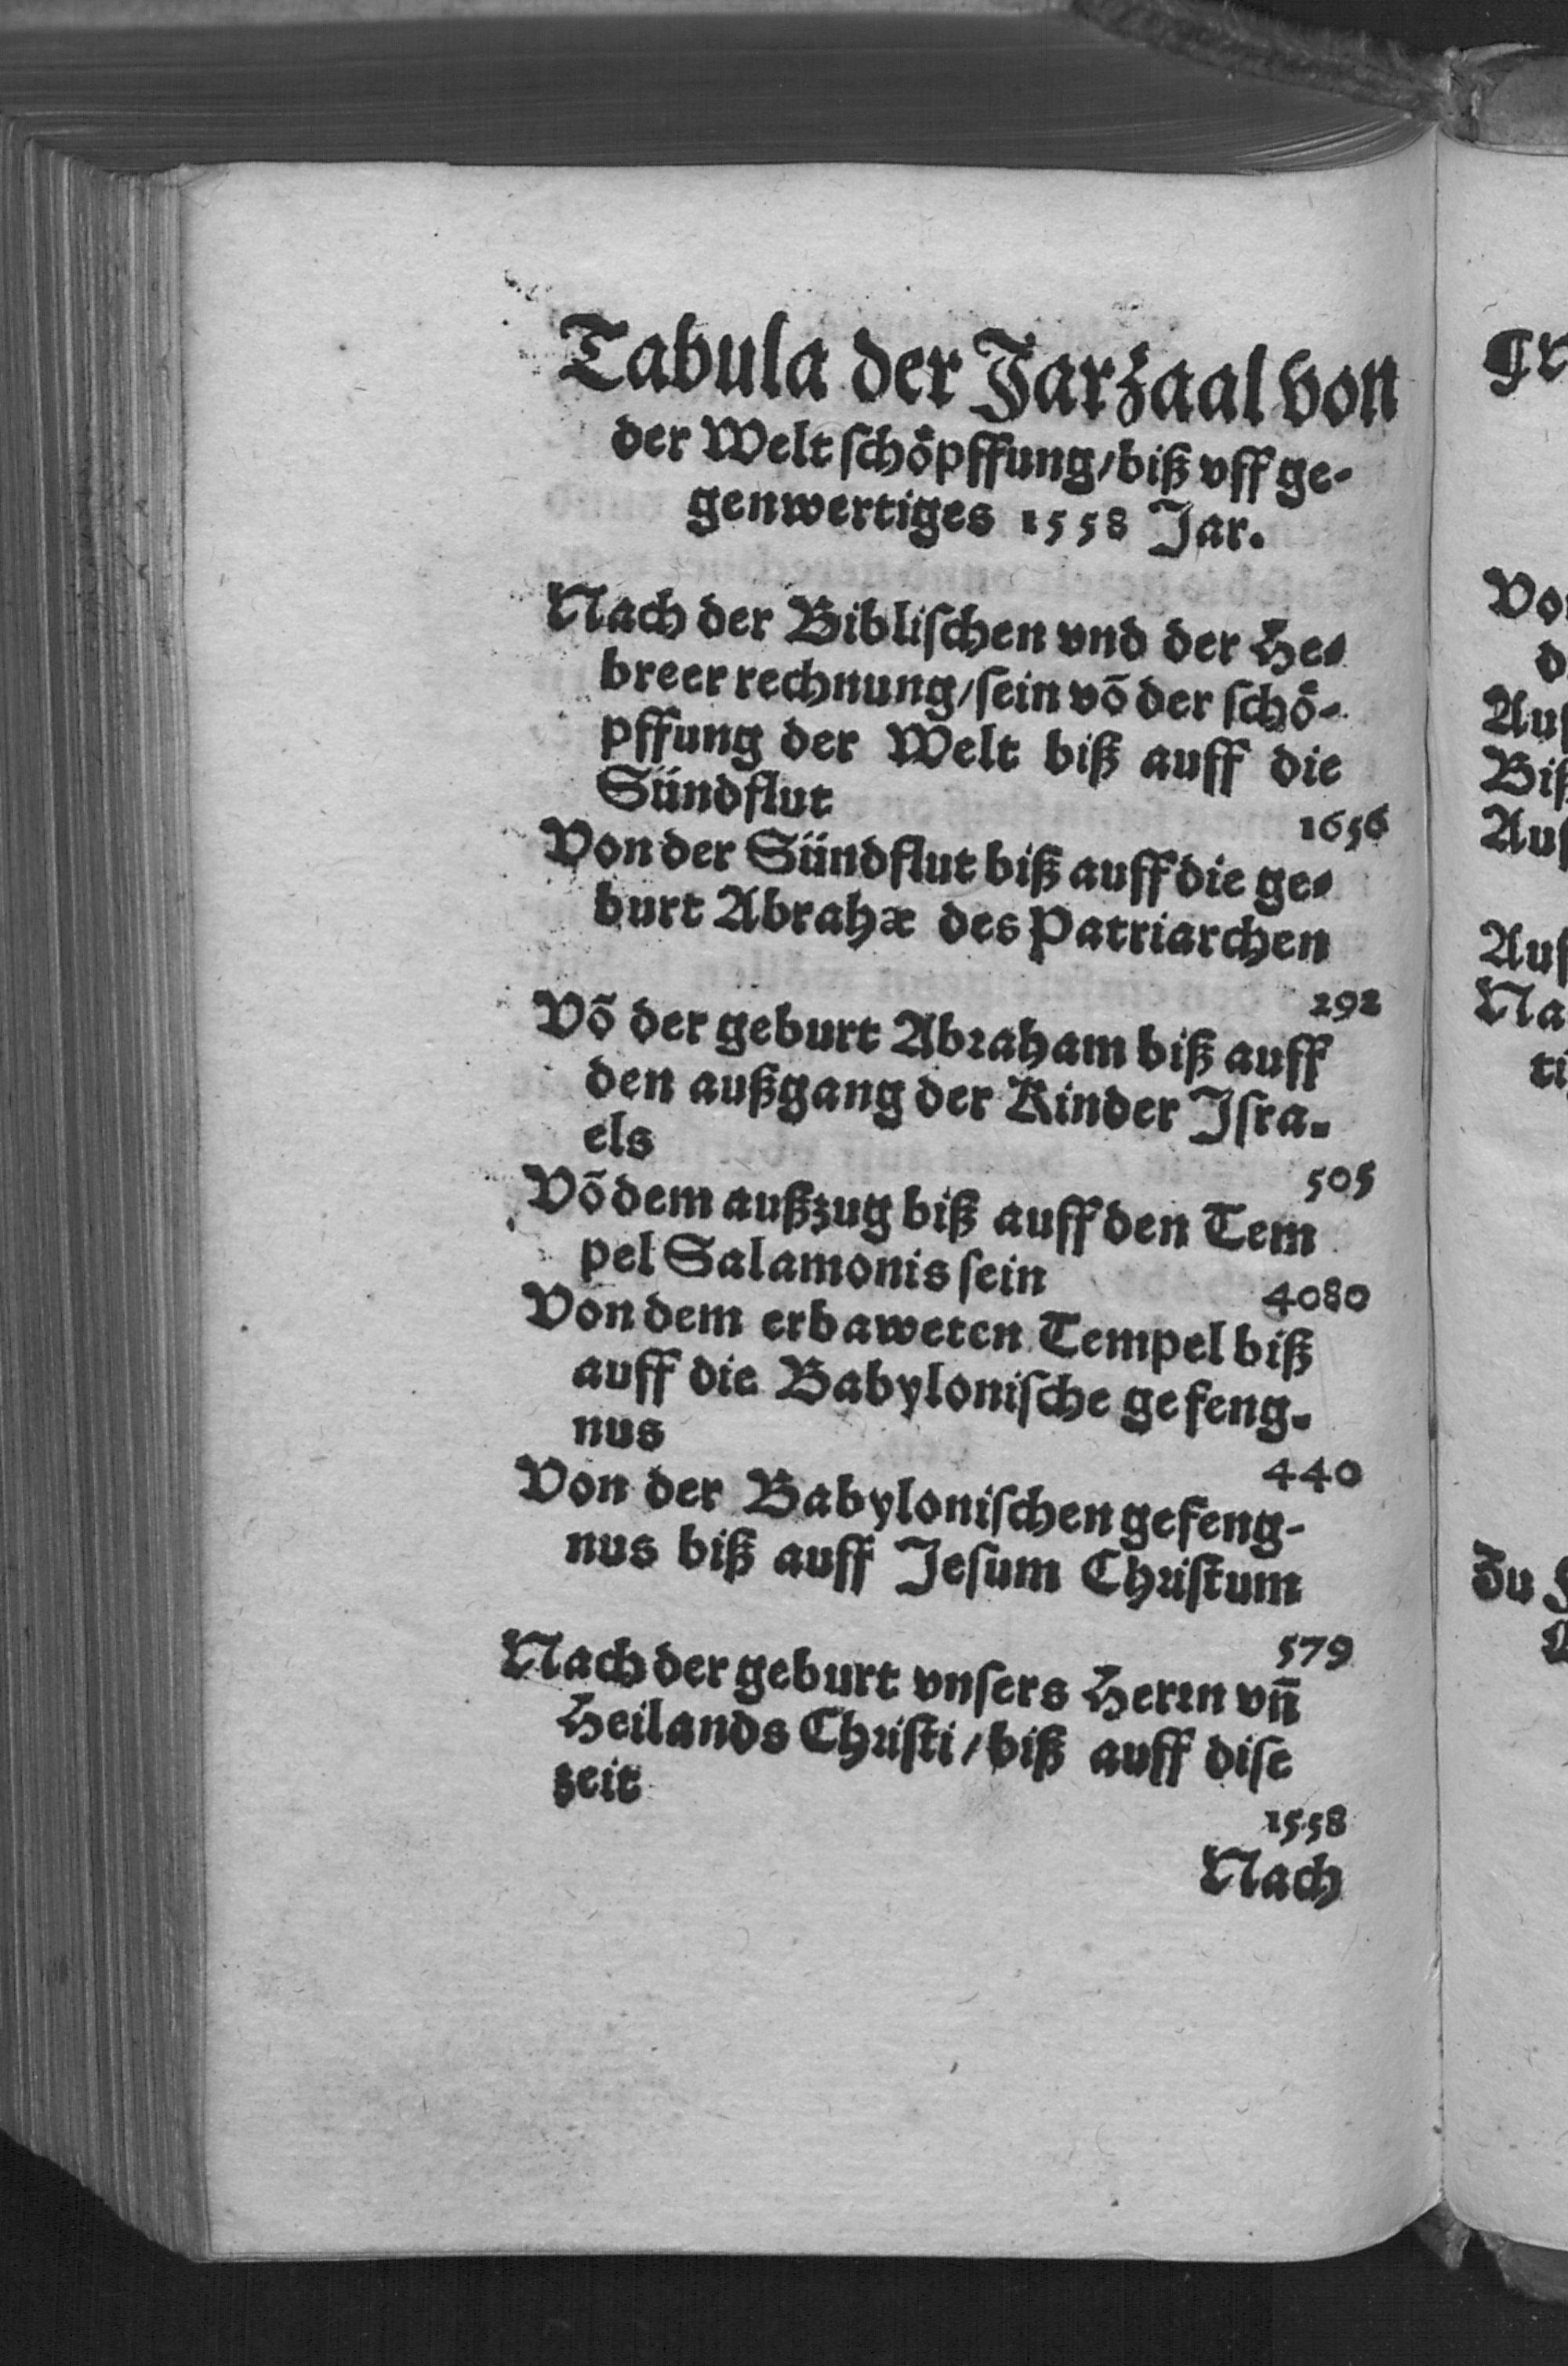 Tabula der Jarzaal von
der Welt ſchöpffung/biß vff ge-
genwertiges 1558 Jar.
Nach der Bibliſchen vnd der He-
breer rechnung/ſein võ der ſchö-
pffung der Welt biß auff die
Sündflut 1656
Von der Sündflut biß auff die ge-
burt Abrahæ des Patriarchen
292
Võ der geburt Abraham biß auff
den außgang der Kinder Iſra-
els 505
Võ dem außzug biß auff den Tem
pel Salamonis ſein 4080
Von dem erbaweten Tempel biß
auff die Babyloniſche gefeng-
nus 440
Von der Babyloniſchen gefeng-
nus biß auff Jeſum Chriſtum
579
Nach der geburt vnſers Herrn vñ
Heilands Chriſti/biß auff diſe
zeit 1558
Nach